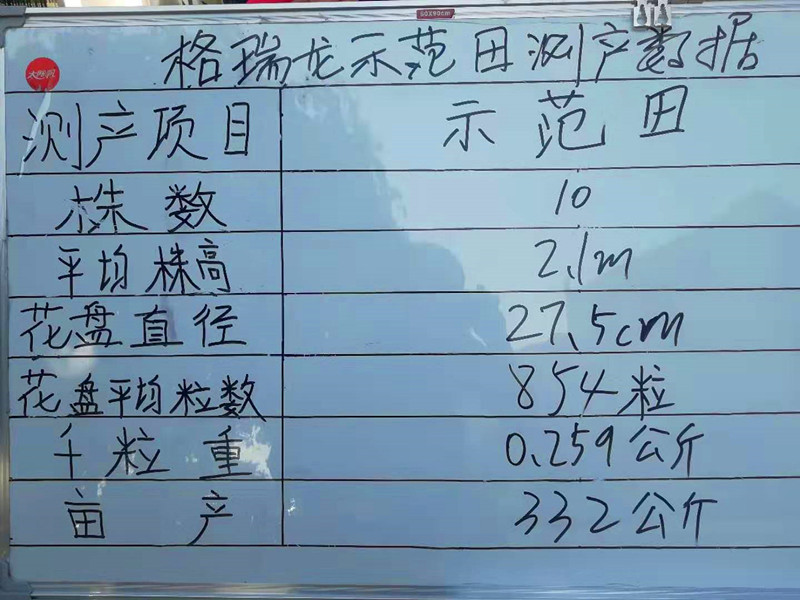 60X90cm
格瑞龙示范田测产数据
测产项目 示范田
株数 10
平均株高 2.1m
花盘直径 27.5cm
花盘平均粒数 854粒
千粒重 0.259公斤
亩产 332公斤